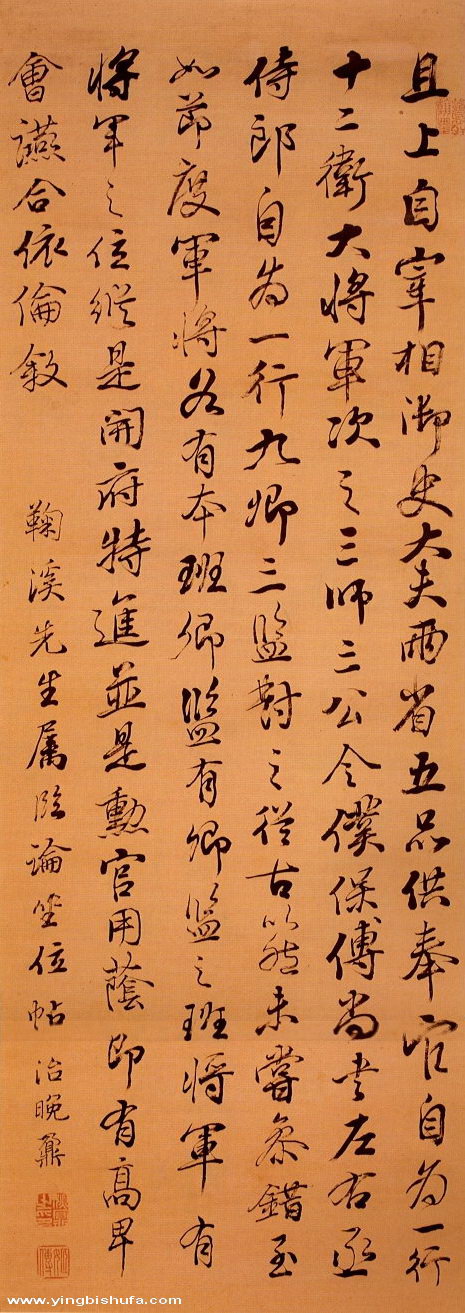 且上自宰相御史大夫兩省五品供奉官自為一行
十二衛大將軍次之三師三公令僕保傅尚書左右丞
侍郎自為一行九卿三監對之從古以然未嘗參錯至
如節度軍將各有本班卿監有卿監之班將軍有
將軍之位縱是開府特進並是勳官用蔭即有高卑
會讌合依倫敘
鞠溪先生屬臨論坐位帖 治晚鼐
www.yingbishufa.com